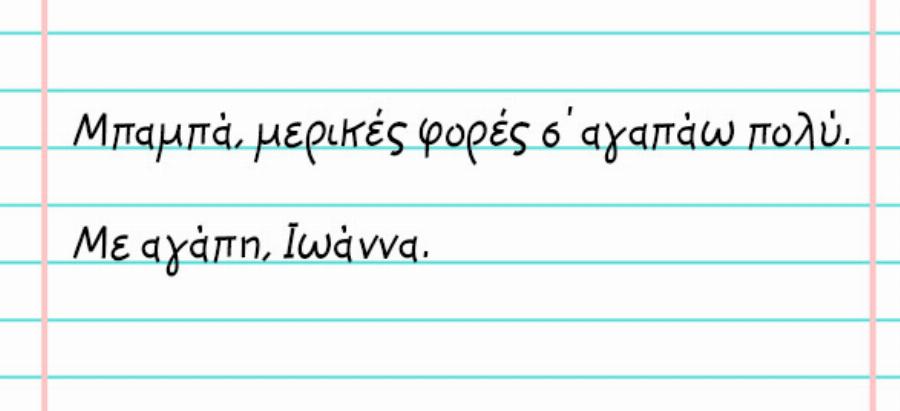 Μπαμπά, μερικές φορές σ' αγαπάω πολύ.
Με αγάπη, Ιωάννα.